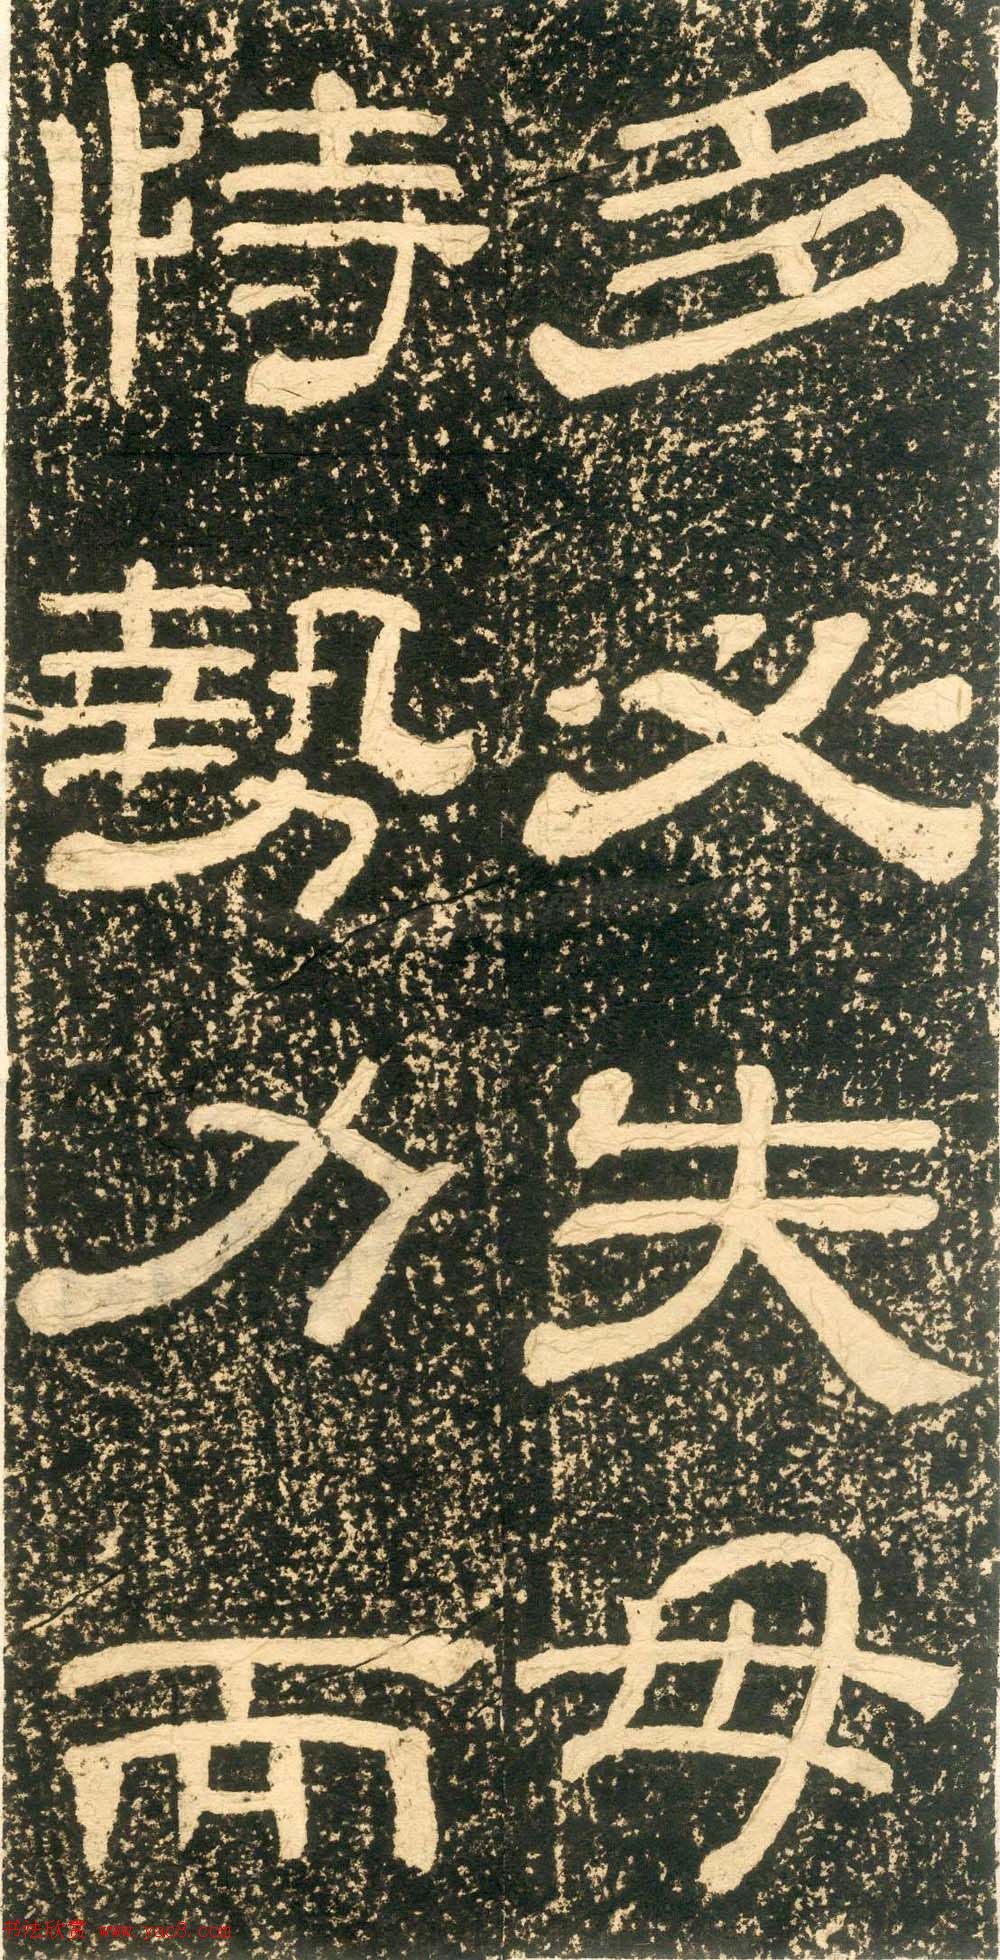 多必失毋
恃勢力而
书法欣赏 www.yac8.com